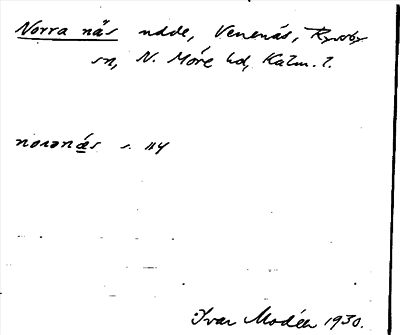 Norra näs udde, Venenäs, Ryssby
sn, N. Möre hd, Kalm. l.
noranæs s. 114
Ivar Modéer 1930.